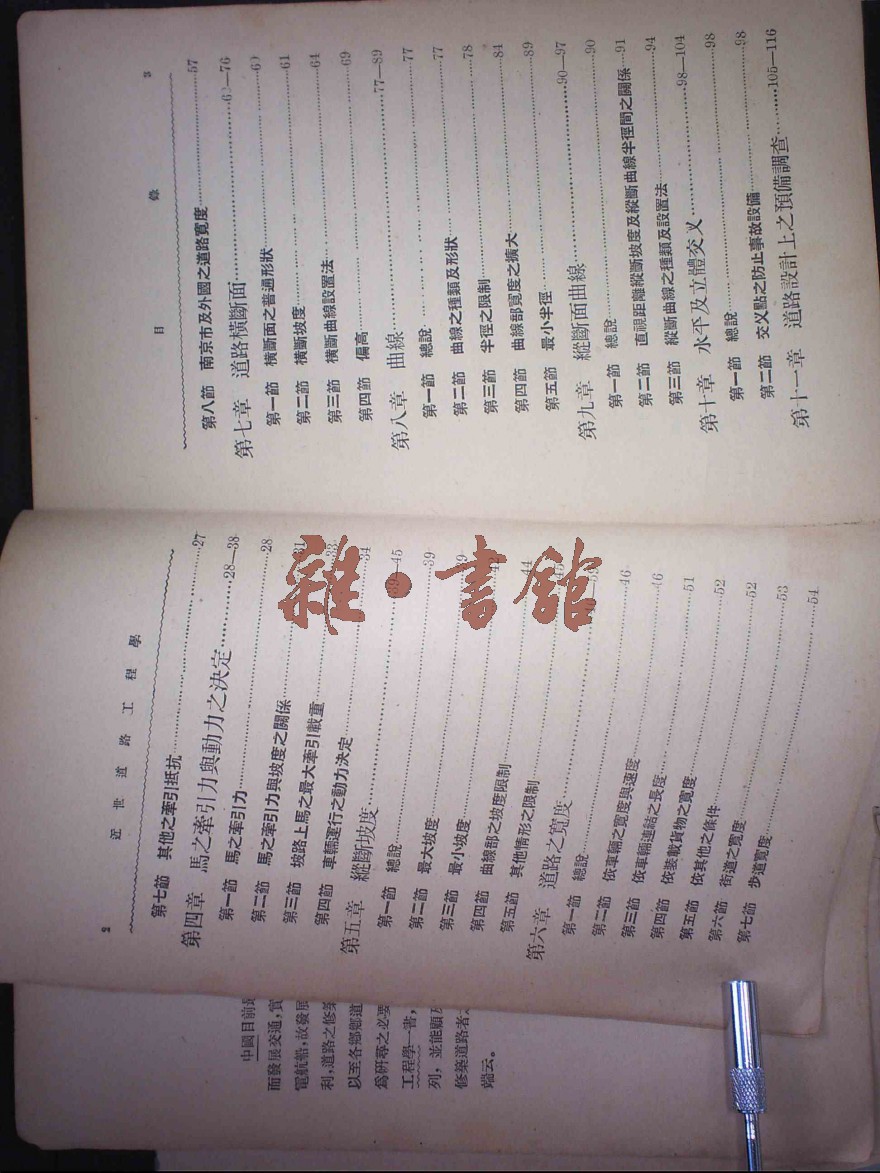 2
近世道路工程學
第七節 其他之牽引抵抗……27
第四章 馬之牽引力與動力之決定……28—38
第一節 馬之牽引力……28
第二節 馬之牽引力與坡度之關係……31
第三節 坡路上馬之最大牽引載重……33
第四節 車輛運行之動力決定……34
第五章 縱斷坡度……39—45
第一節 總說……39
第二節 最大坡度
第三節 最小坡度
第四節 曲線部之坡度限制……44
第五節 其他情形之限制
第六章 道路之寬度
第一節 總說……46
第二節 依車輛之寬度與速度……46
第三節 依車輛連結之長度……51
第四節 依裝載貨物之寬度……52
第五節 依其他之條件……52
第六節 街道之寬度……53
第七節 步道寬度……54
目錄
3
第八節 南京市及外國之道路寬度……57
第七章 道路橫斷面……60—76
第一節 橫斷面之普通形狀……60
第二節 橫斷坡度……61
第三節 橫斷曲線設置法……64
第四節 偏高……69
第八章 曲線……77—89
第一節 總說……77
第二節 曲線之種類及形狀……77
第三節 半徑之限制……78
第四節 曲線部寬度之擴大……84
第五節 最小半徑……89
第九章 縱斷面曲線……90—97
第一節 總說……90
第二節 直視距離縱斷坡度及縱斷曲線半徑間之關係……91
第三節 縱斷曲線之種類及設置法……94
第十章 水平及立體交叉……98—104
第一節 總說……98
第二節 交叉點之防止事故設備……98
第十一章 道路設計上之預備調查……105—116
中國目前
而發展交通,實
電航船,故發展
利,道路之修築
以至各鄉鄉道
爲研尋之必要
工程學一書,
列,並能顧及
修築道路者
端云。
雜·書館